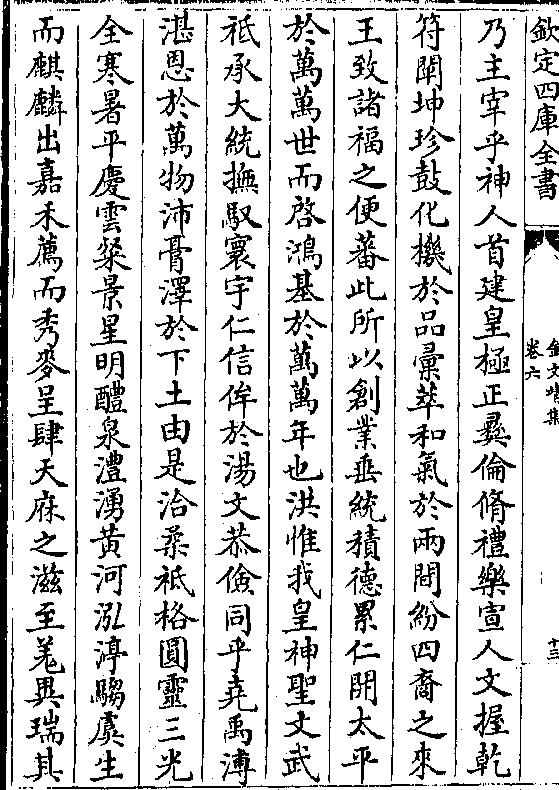 欽定四庫全書
金文靖集
卷六
十三
乃主宰乎神人首建皇極正彛倫脩禮樂宣人文握乾
符闡坤珍鼓化機於品彚萃和氣於兩間紛四裔之來
王致諸福之便蕃此所以創業垂統積德累仁開太平
於萬萬世而啓鴻基於萬萬年也洪惟我皇神聖文武
祇承大統撫馭寰宇仁信侔於湯文恭儉同乎堯禹溥
湛恩於萬物沛膏澤於下土由是洽柔祗格圓靈三光
全寒暑平慶雲粲景星明醴泉澧湧黃河泓渟騶虞生
而麒麟出嘉禾薦而秀麥呈肆天庥之滋至羌異瑞其